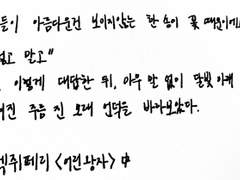 들이 아름다운건 보이지않는 한 송이 꽃 때문이에
렇고 말고”
이렇게 대답한 뒤, 아무 말 없이 달빛 아래
쳐진 주름 진 모래 언덕을 바라보았다.
텍쥐페리 <어린왕자> 中